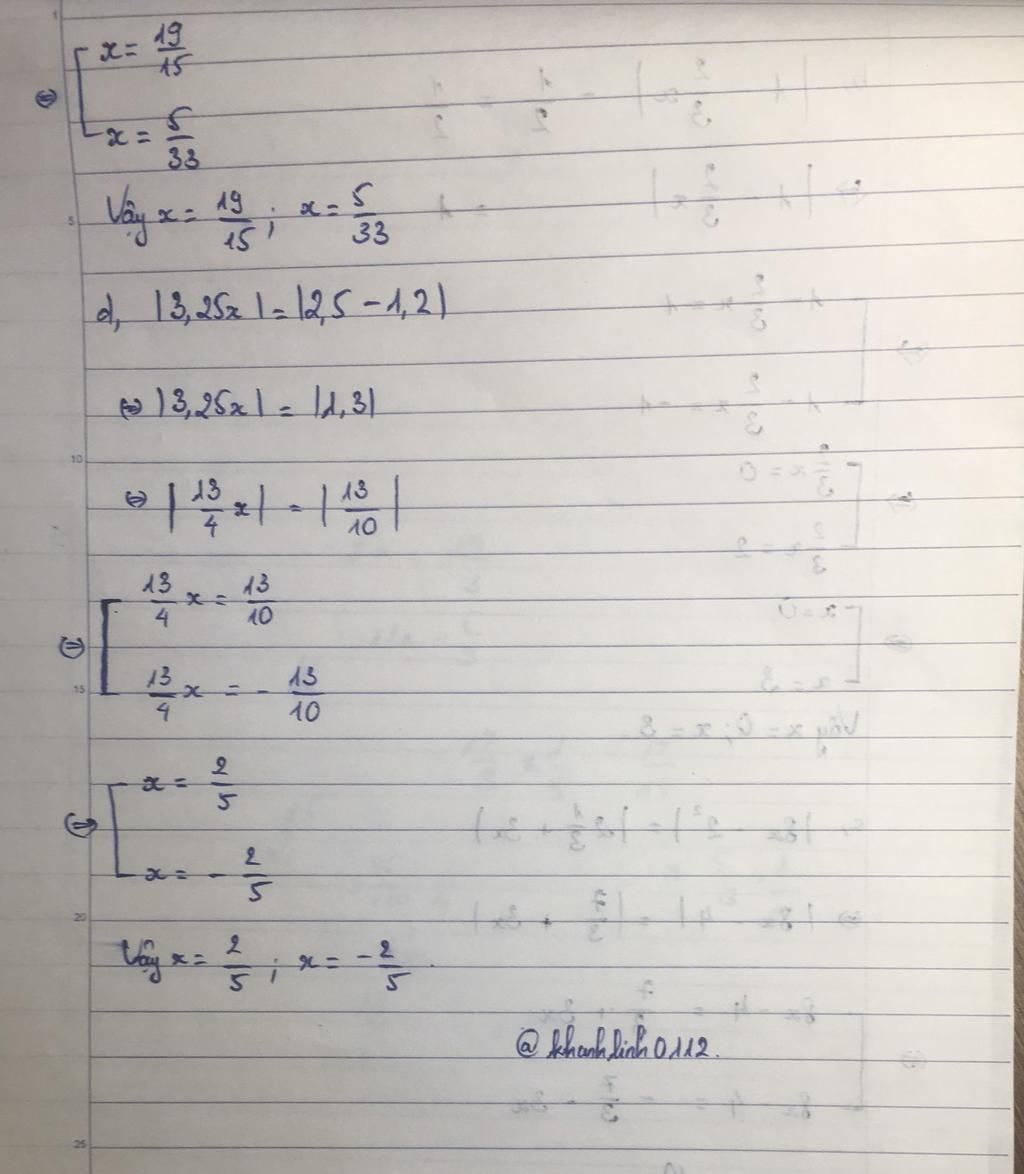 x = 19/15
⇔
x = 5/33
Vậy x = 19/15 ; x = 5/33
d, |3,25x| = |2,5 - 1,2|
⇔ |3,25x| = |1,3|
⇔ |13/4 x| = |13/10|
13/4 x = 13/10
⇔
13/4 x = - 13/10
x = 2/5
⇔
x = - 2/5
Vậy x = 2/5 ; x = - 2/5.
@ khanhlinh0112.